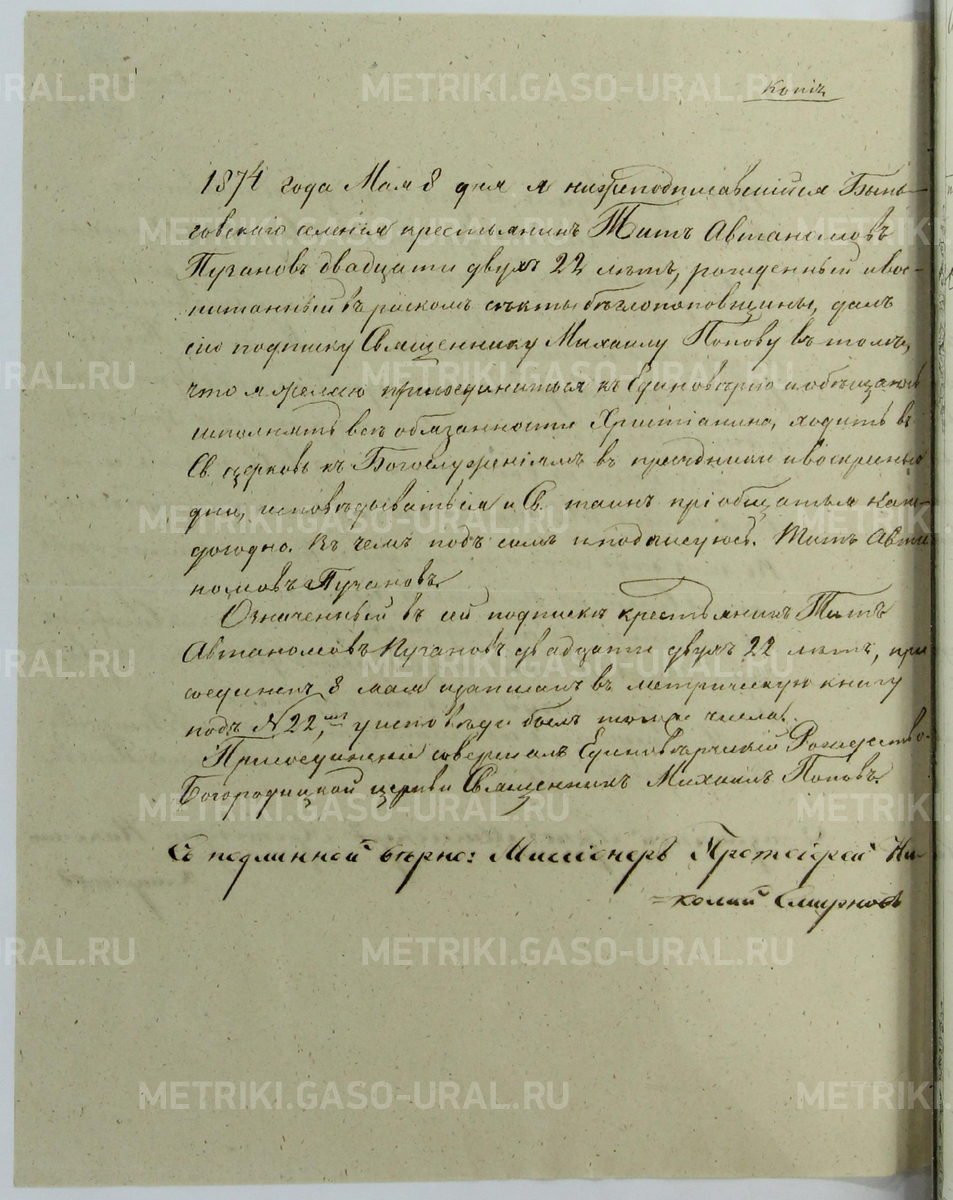 Копія
1874 года Мая 8 дня я нижеподписавшійся Бынь-
говскаго селенія крестьянинъ Титъ Автаномовъ
Пугановъ двадцати двухъ 22 лѣтъ, рожденный и вос-
питанный въ расколѣ сѣкты бѣглопоповщины, далъ
сію подписку Священнику Михаилу Попову въ томъ,
что я желаю присоединиться къ Единовѣрію и обѣщаюсь
исполнять всѣ обязанности Христіанина, ходить въ
Св. церковь къ Богослуженіямъ въ праздники и воскресные
дни, исповѣдываться и Св. таинъ пріобщаться каж-
догодно. Въ чемъ подъ симъ и подписуюсь. Титъ Авта
номовъ Пугановъ.
Означенный въ сей подпискѣ крестьянинъ Титъ
Автаномовъ Пугановъ двадцати двухъ 22 лѣтъ, при
соединенъ 8 мая и записанъ въ метрическую книгу
подъ № 22, у исповѣди былъ того же числа.
Присоединеніе совершалъ Единовѣрческій Рождество-
Богородицкой церкви Священникъ Михаилъ Поповъ.
Съ подлинной вѣрно: Миссіонеръ Протоіерей Ни-
=колай Смирновъ
METRIKI.GASO-URAL.RU